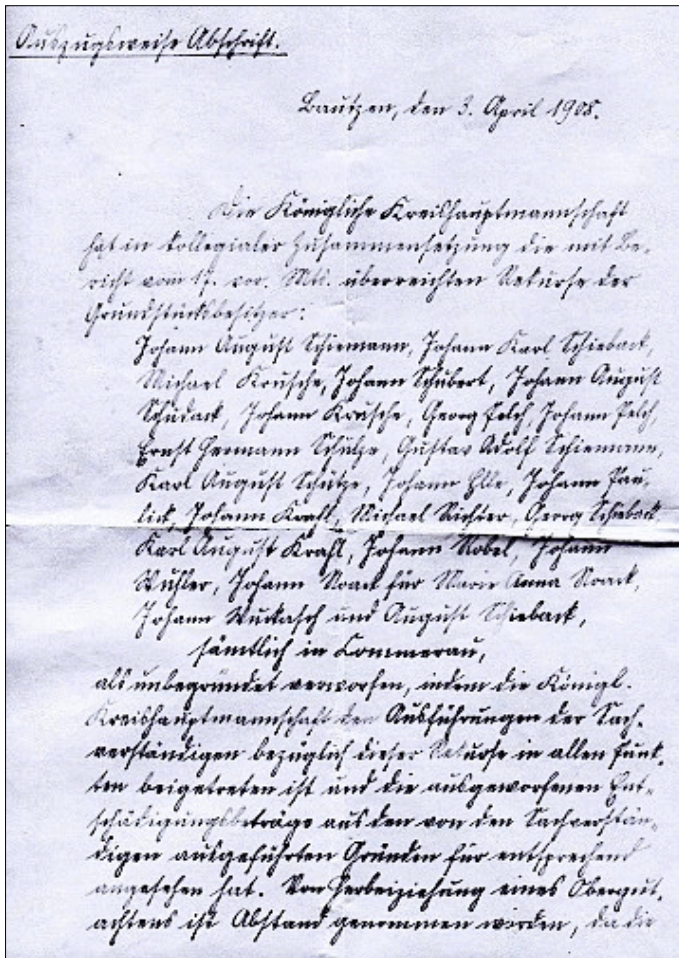 Auszugsweise Abschrift.
Bautzen, den 3. April 1908.
Die Königliche Kreishauptmannschaft
hat in kollegialer Zusammensetzung die mit Be-
richt vom 17. vor. Mts. überreichten Rekurse der
Grundstücksbesitzer:
Johann August Schiemann, Johann Karl Schieback,
Michael Krusche, Johann Schubert, Johann August
Schudack, Johann Krusche, Georg Pelch, Johann Pelch,
Ernst Hermann Schulze, Gustav Adolf Schiemann,
Karl August Schütze, Johann Elle, Johann Pau-
lick, Johann Krahl, Michael Richter, Georg Schieback
Karl August Krahl, Johann Robel, Johann
Johann Noack für Marie Anna Noack,
Johann Wuckasch und August Schieback,
sämtlich in Commerau,
als unbegründet verworfen, indem die Königl.
Kreishauptmannschaft den Ausführungen der Sach-
verständigen bezüglich dieser Rekurse in allen Punk-
ten beigetreten ist und die ausgeworfenen Ent-
schädigungsbeträge aus den von den Sachverstän-
digen ausgeführten Gründen für entsprechend
angesehen hat. Von Herbeiziehung eines Obergut-
achtens ist Abstand genommen worden, da die